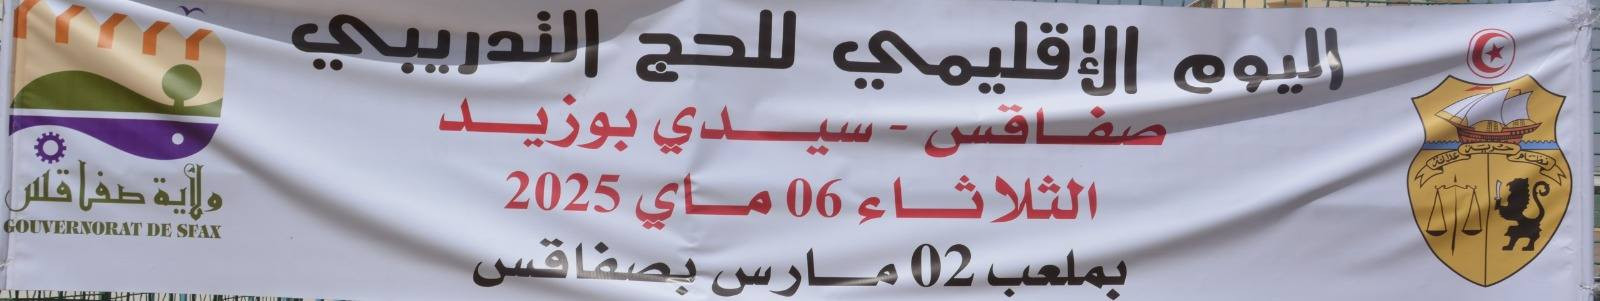 اليوم الإقليمي للحج التدريبي
صفاقس - سيدي بوزيد
الثلاثاء 06 ماي 2025
بملعب 02 مارس بصفاقس
ولاية صفاقس
GOUVERNORAT DE SFAX
نظام حرية عدالة